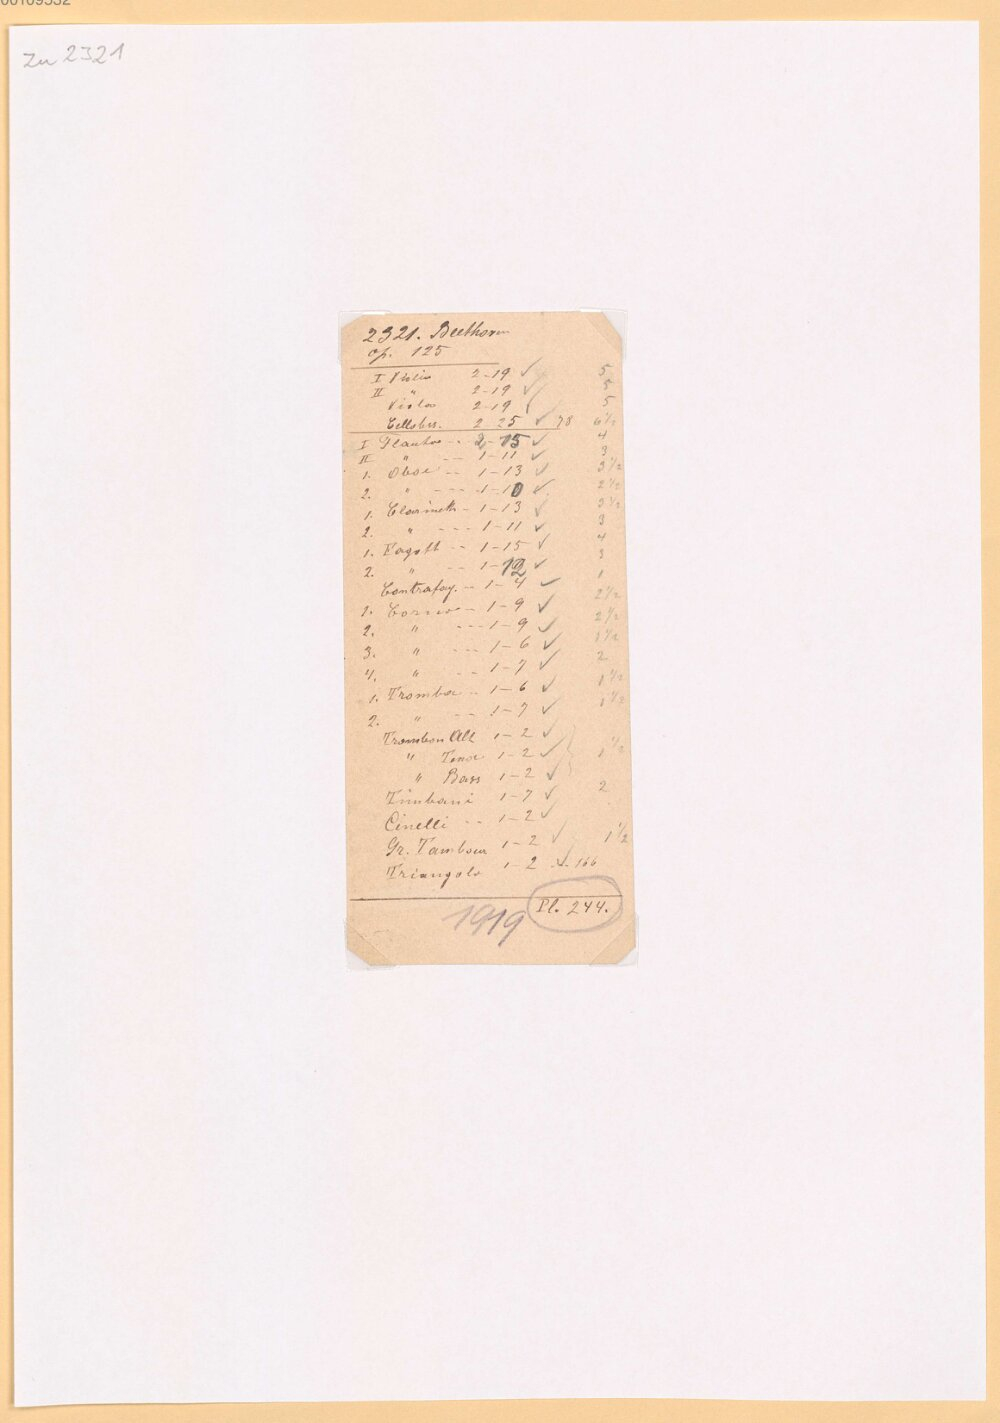 Zu 2321
2321. Beethoven
op. 125
I Violin 2-19 ✓ 5
II " 2-19 ✓ 5
Viola 2-19 5
Cellobss. 2 25 ✓ 78 6 1/2
I Flauto -- 2-15 ✓ 4
II " -- 1-11 ✓ 3
1. Oboe -- 1-13 ✓ 3 1/2
2. " --- 1-10 ✓ 2 1/2
1. Clarinett - 1-13 ✓ 3 1/2
2. " --- 1-11 ✓ 3
1. Fagott -- 1-15 ✓ 4
2. " -- 1-12 ✓ 3
Contrafag. - 1-4 ✓ 1
1. Corno - 1-9 ✓ 2 1/2
2. " --- 1-9 ✓ 2 1/2
3. " --- 1-6 ✓ 1 1/2
4. " -- 1-7 ✓ 2
1. Tromba -- 1-6 ✓ 1 1/2
2. " -- 1-7 ✓ 1 1/2
Trombon Alt 1-2 ✓
" Tenor 1-2 ✓ 1 1/2
" Bass 1-2 ✓
Timbani 1-7 ✓ 2
Cinelli -- 1-2 ✓
Gr. Tambour 1-2 ✓ 1 1/2
Triangolo 1-2 166
Pl. 244.
1919